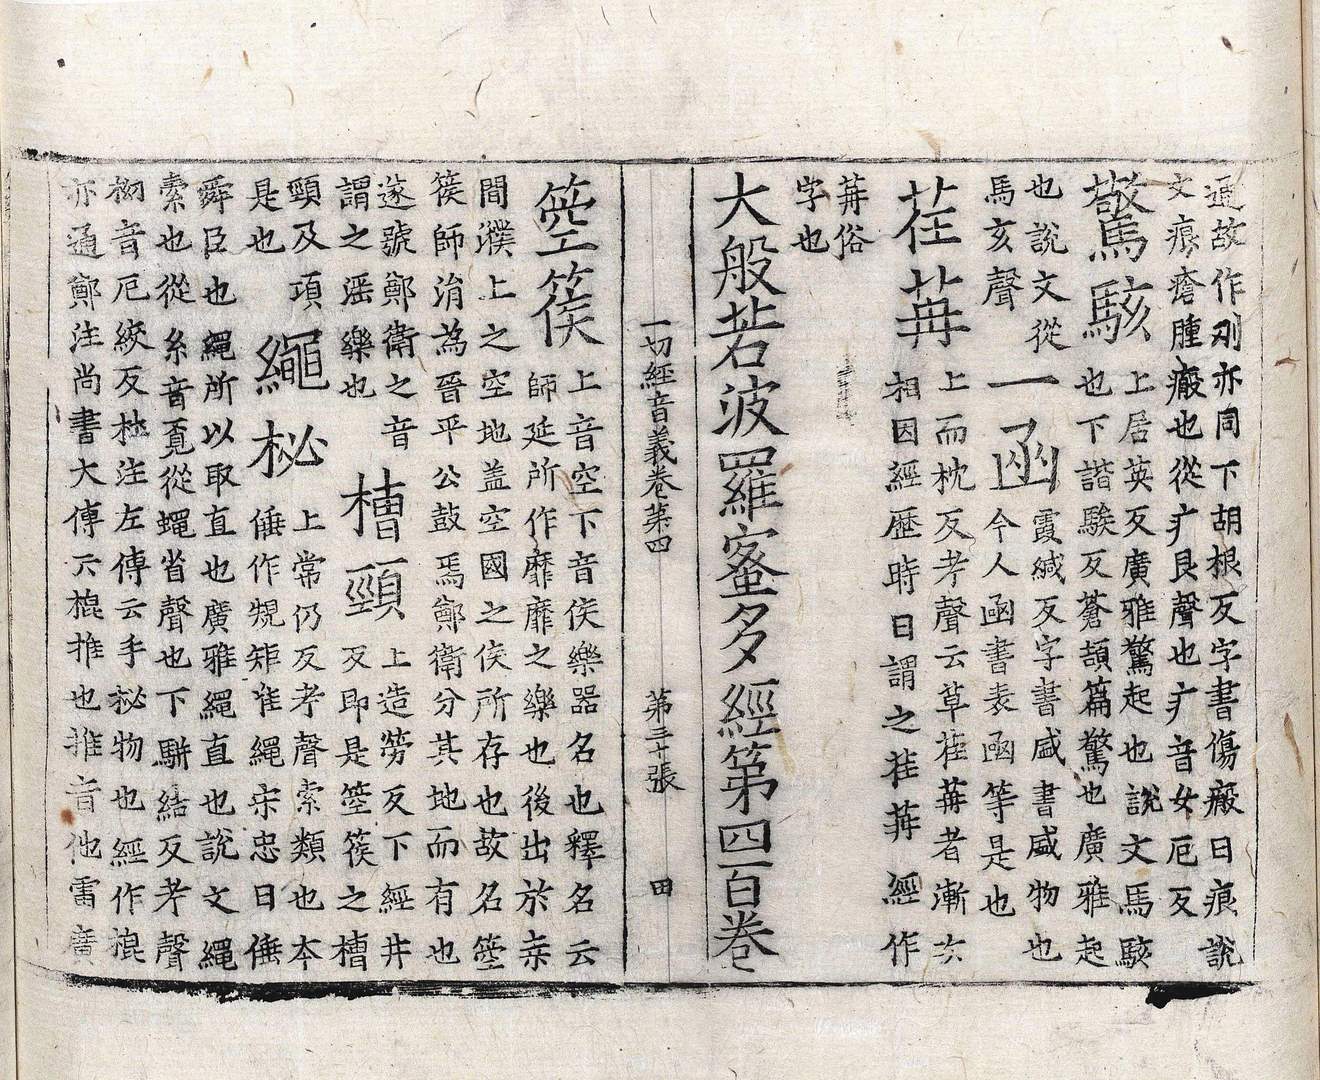 通故作刓亦同下胡根反字書傷瘢曰痕說
文痕瘡腫瘢也從疒艮聲也疒音女厄反
驚駭上居英反廣雅驚起也說文馬駭
也下諧騃反蒼頡篇驚也廣雅起
也說文從
馬亥聲
一函霞緘反字書盛書咸物也
今人函書表函等是也
荏苒上而枕反考聲云草荏苒者漸次
相因經歷時日謂之荏苒經作
苒俗
字也
大般若波羅蜜多經第四百卷
一切經音義卷第四 第三十張 田
箜篌上音空下音侯樂器名也釋名云
師延所作靡靡之樂也後出於桒
間濮上之空地盖空國之侯所存也故名箜
篌師涓為晉平公鼓焉鄭衛分其地而有也
遂號鄭衛之音
謂之滛樂也
槽頸上造勞反下經井
反即是箜篌之槽
頸及項
是也
繩柲上常仍反考聲索類也本
倕作規矩准繩宋忠曰倕
舜臣也繩所以取直也廣雅繩直也說文繩
索也從糸音覓從蠅省聲也下駢結反考聲
柲音厄絞反柱注左傳云手柲物也經作棍
亦通鄭注尚書大傳云棍推也推音他雷廣